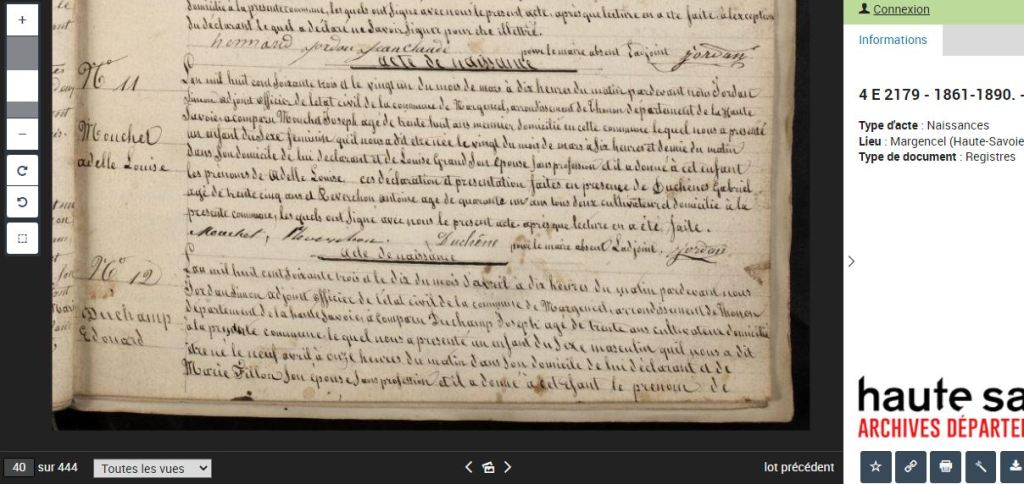 domicilié à la presente commune, lesquels ont signé avec nous le present acte, après que lecture en a été faite, à l'exception
du declarant lequel a déclaré ne savoir signer pour être illettré.
jordan jean Claude pour le maire absent Ladjoint jordan
acte de naissance
No 11
Mouchet
adelle Louise
Lan mil huit cent soixante trois et le vingt un du mois de mars à dix heures du matin pardevant nous Jordan
Simon adjoint officier de letat civil de la commune de Margencel, arrondissement de Thonon departement de la haute
Savoie a comparu Mouchet Joseph agé de trente huit ans meunier domicilié en cette commune lequel nous a presenté
un enfant du sexe feminin qu'il nous a dit etre née le vingt du mois de mars a six heures et demie du matin
dans son domicile de lui declarant et de Louise Grand son épouse sans profession et il a donné à cet enfant
les prenoms de Adelle Louise ces déclaration et presentation faites en presence de Duchêne Gabriel
agé de trente cinq ans et Reverchon antoine age de quarante un ans tous deux cultivateur et domicilié à la
presente commune, les quels ont signé avec nous le present acte après que lecture en a été faite.
Mouchet, Reverchon. Duchêne pour le maire absent Ladjoint. jordan
acte de naissance
No 12
Duchamp
Edouard
Lan mil huit cent soixante trois et le dix du mois d'avril à dix heures du matin pardevant nous
Jordan Simon adjoint officier de letat civil de la commune de Margencel, arrondissement de Thonon
département de la haute Savoie, a comparu Duchamp Joseph agé de trente ans cultivateur domicilié
à la presente commune, le quel nous a presenté un enfant du sexe masculin qu'il nous a dit
etre né le neuf avril à onze heures du matin dans son domicile de lui declarant et de
Marie Fillon son épouse sans profession et il a donné à cet enfant le prenom de
40 sur 444 Toutes les vues lot précédent
Connexion
Informations
4 E 2179 - 1861-1890. -
Type d'acte : Naissances
Lieu : Margencel (Haute-Savoie
Type de document : Registres
haute sa
ARCHIVES DÉPARTE